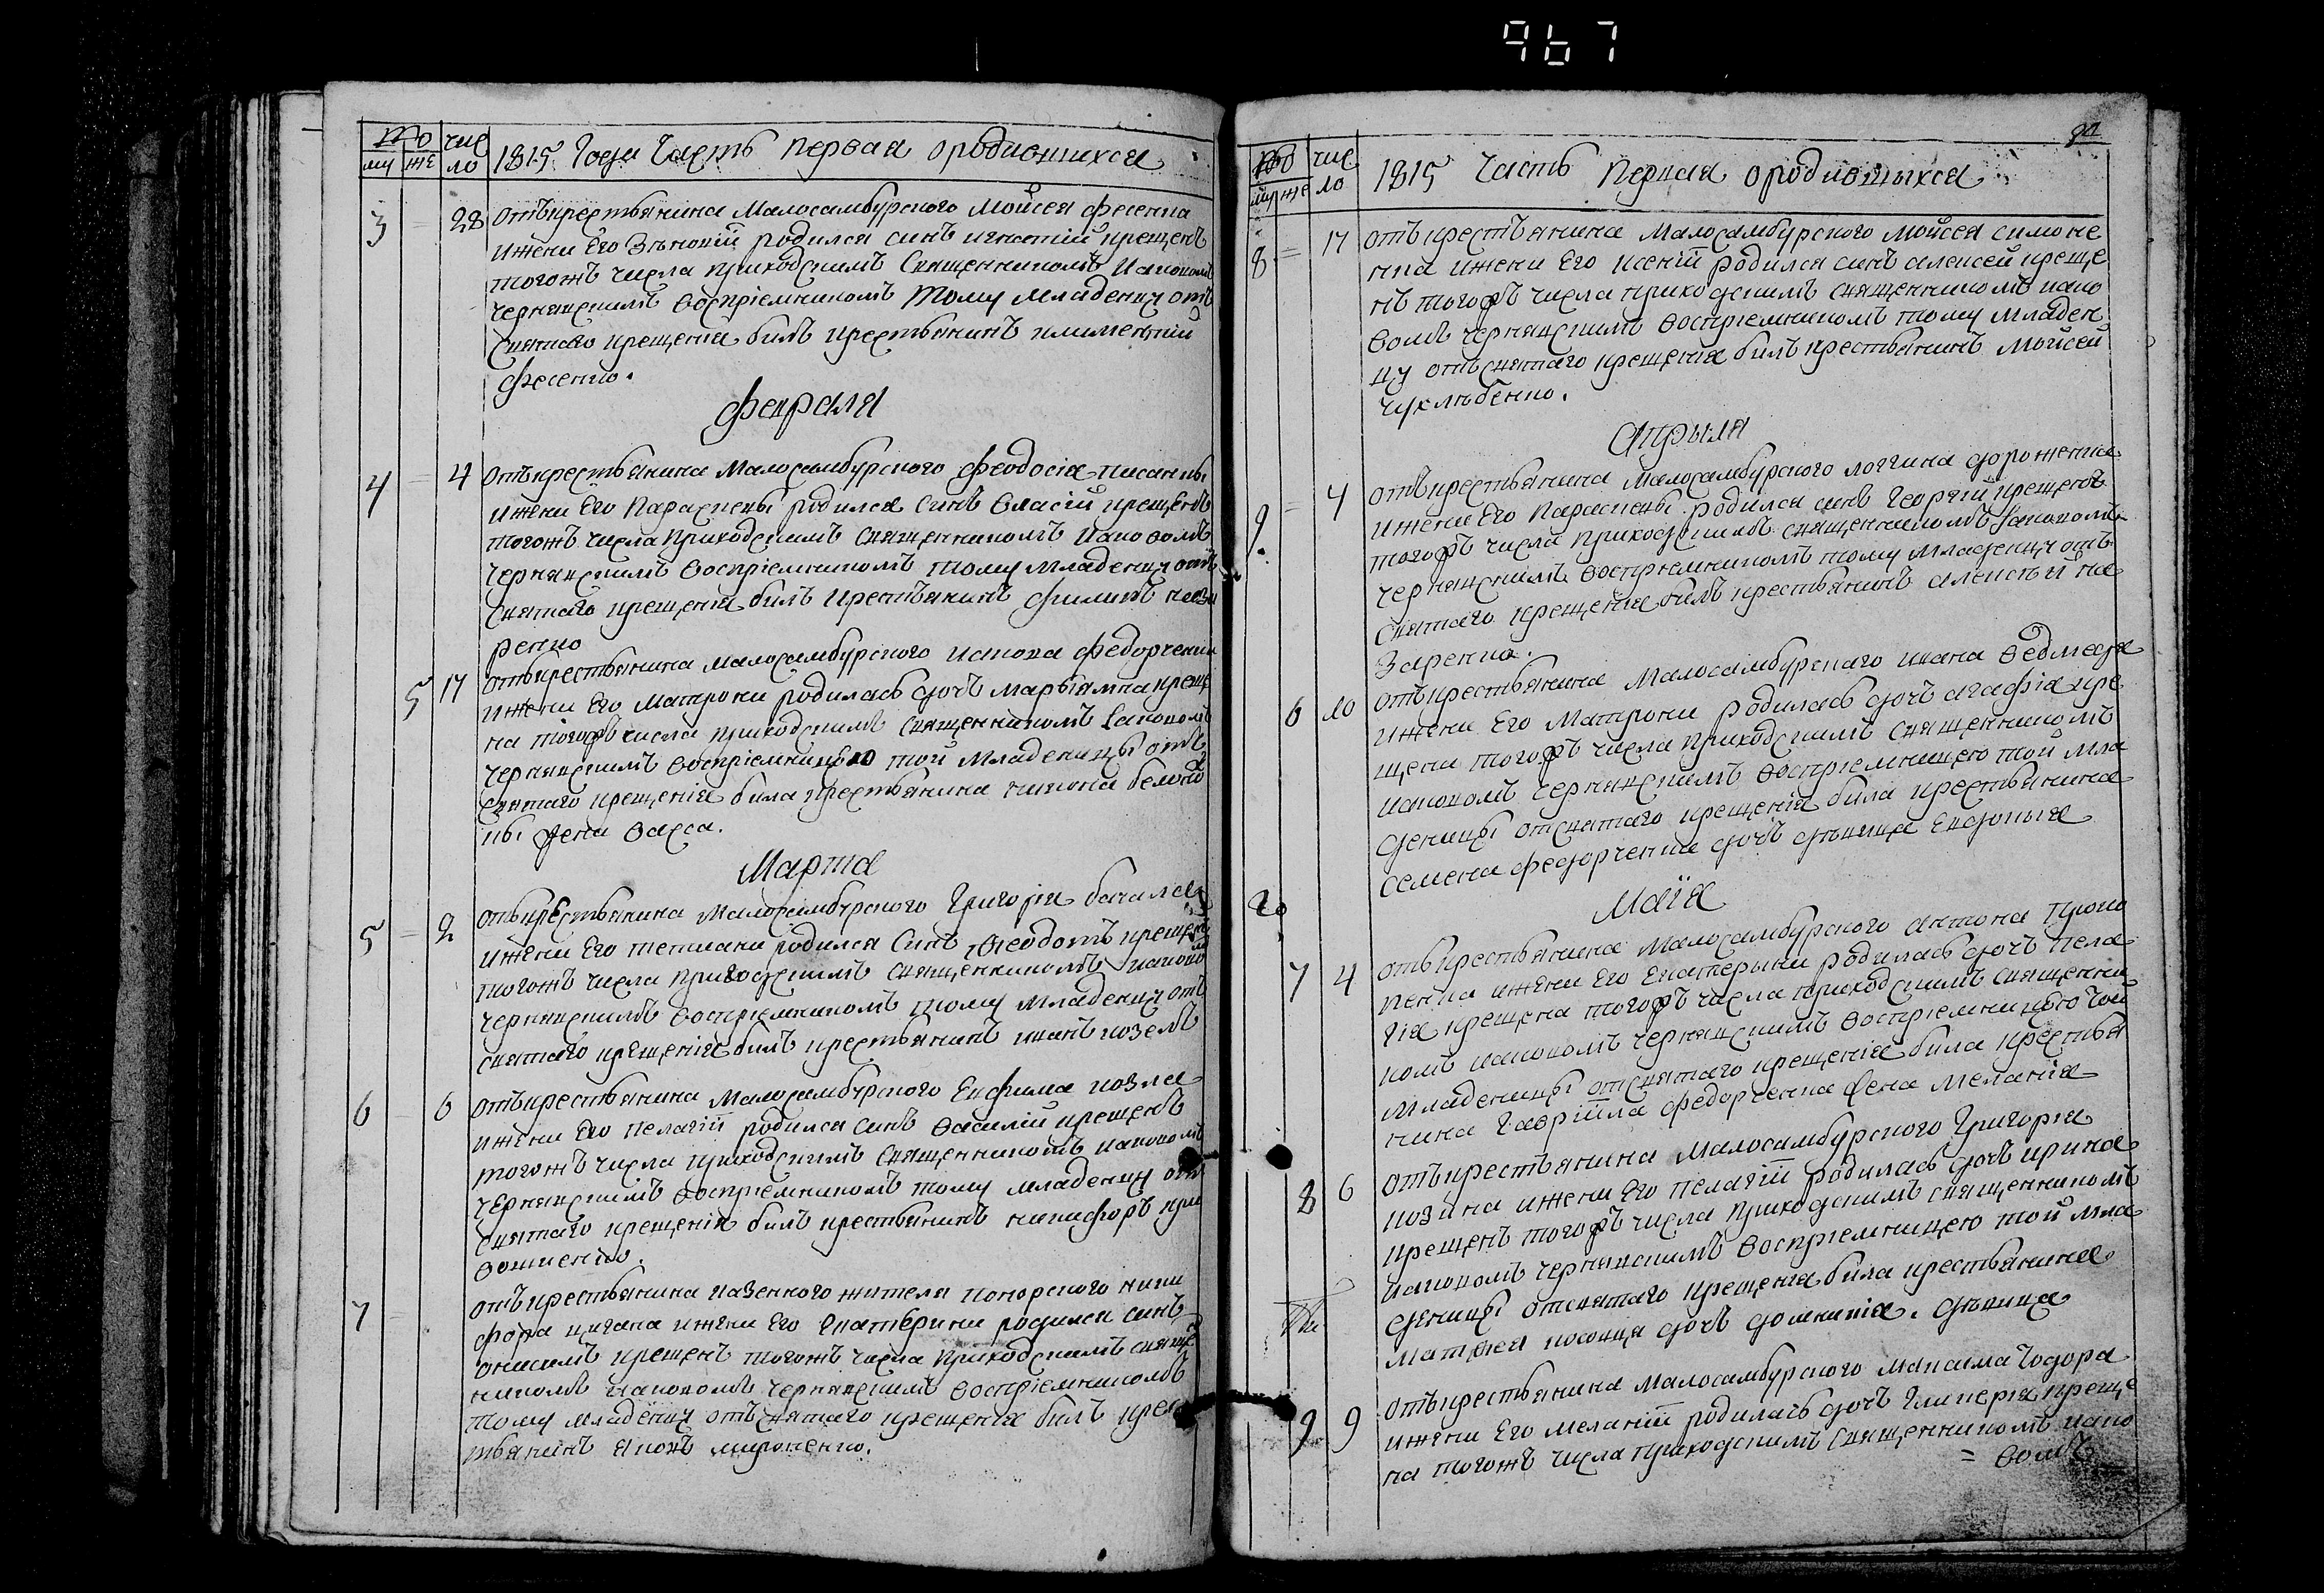 967
что чис 1815 Года Часть первая ородившихся
му же ло
3 = 28 отъкрестьянина Малосамбурского Мойсея фесенка
ижени Его Зѣновіи родился синъ игнатій крещенъ
тогожъ числа приходскимъ Священникомъ Иаковомъ
чернявскимъ воспріемникомъ тому младенцу отъ
святаго крещенія билъ крестьянинъ климентій
фесенко.
февраля
4 = 4 отъкрестьянина Малосамбурского феодосія писанки
ижени Его Параскевы родился синъ Власій крещенъ
тогожъ числа приходскимъ Священникомъ Иаковомъ
чернявскимъ воспріемникомъ тому младенцу отъ
святаго крещенія билъ крестьянинъ филипъ назаренко
5 17 отъкрестьянина малосамбурского иакова федорченка
ижени Его матрони родилась дочь Маріямна креще
на тогожъ числа приходскимъ Священникомъ Iаковомъ
чернявскимъ воспріемницею той младеницы отъ
святаго крещенія била крестьянина
жена васса.
Марта
5 = 2 отъкрестьянина Малосамбурского Григорія бакала
ижени Его тетиани родился Синъ Феодотъ крещенъ
тогожъ числа приходскимъ священникомъ иаково
мъ
чернявскимъ воспріемникомъ тому младенцу отъ
святаго крещенія билъ крестьянинъ иванъ козелъ
6 6 отъкрестьянина малосамбурского Евфима козла
ижени Его пелагіи родился синъ василій крещенъ
тогожъ числа приходскимъ священникомъ иаковомъ
чернявскимъ воспріемникомъ тому младенцу отъ
святаго крещенія билъ крестьянинъ никифоръ кри
вошиенко.
7 отъкрестьянина казенного жителя конорского ники
фора цигана ижени Его Екатерини родился синъ
онисимъ крещенъ тогожъ числа приходскимъ свяще
никомъ иаковомъ чернявскимъ воспріемникомъ
тому младенцу отъ святаго крещенія билъ крес
тьянинъ яковъ мироненко.
что чис 1815 Часть Первая ородившыхся
му же ло
8 = 17 отъкрестьянина малосамбурского Мойсея симоне
нка ижени Его ксеніи родился синъ алексей креще
нъ тогожъ числа приходскимъ священникомъ иако
вомъ чернявскимъ воспріемникомъ тому младен
цу отъ святаго крещенія билъ крестьянинъ мойсей
чухлѣбенко.
Апрыля
9. = 4 отъкрестьянина малосамбурского логгина дороженка
ижени Его параскевы родился синъ Георгій крещенъ
тогожъ числа приходскимъ священникомъ Iаковомъ
чернявскимъ воспріемникомъ тому младенцу отъ
святаго крещенія билъ крестьянинъ алексѣй на
заренко.
6 10 отъкрестьянина Малосамбурскаго ивана ведмедя
ижени Его Матрони родилась дочъ агафія кре
щени тогожъ числа приходскимъ священникомъ
иаковомъ чернявскимъ воспріемницею той мла
деницы отсвятаго крещенія била крестьянина
семена федорченка дочъ дѣвица Евдокыя
Маія
7 4 отъкрестьянина Малосамбурского антона проко
пенка ижени Его Екатерыни родилась дочъ пела
гія крещена тогожъ числа приходскимъ священни
комъ иаковомъ чернявскимъ воспріемницею той
младеницы отсвятаго крещенія била крестья
нина Гавріила федорченка жена Меланія
8 6 отъкрестьянина малосамбурского Григорія
козина ижени Его пелагіи родилась дочъ ирина
крещенъ тогожъ числа приходскимъ священникомъ
иаковомъ чернявскимъ воспріемницею той мла
деницы отсвятаго крещенія била крестьянина
матфея косовця дочъ домникія. дѣвица
9 9 отъкрестьянина малосамбурского максима тодора
ижени Его меланіи родилась дочъ Гликерія креще
на тогожъ числа приходскимъ священникомъ иако
= вомъ